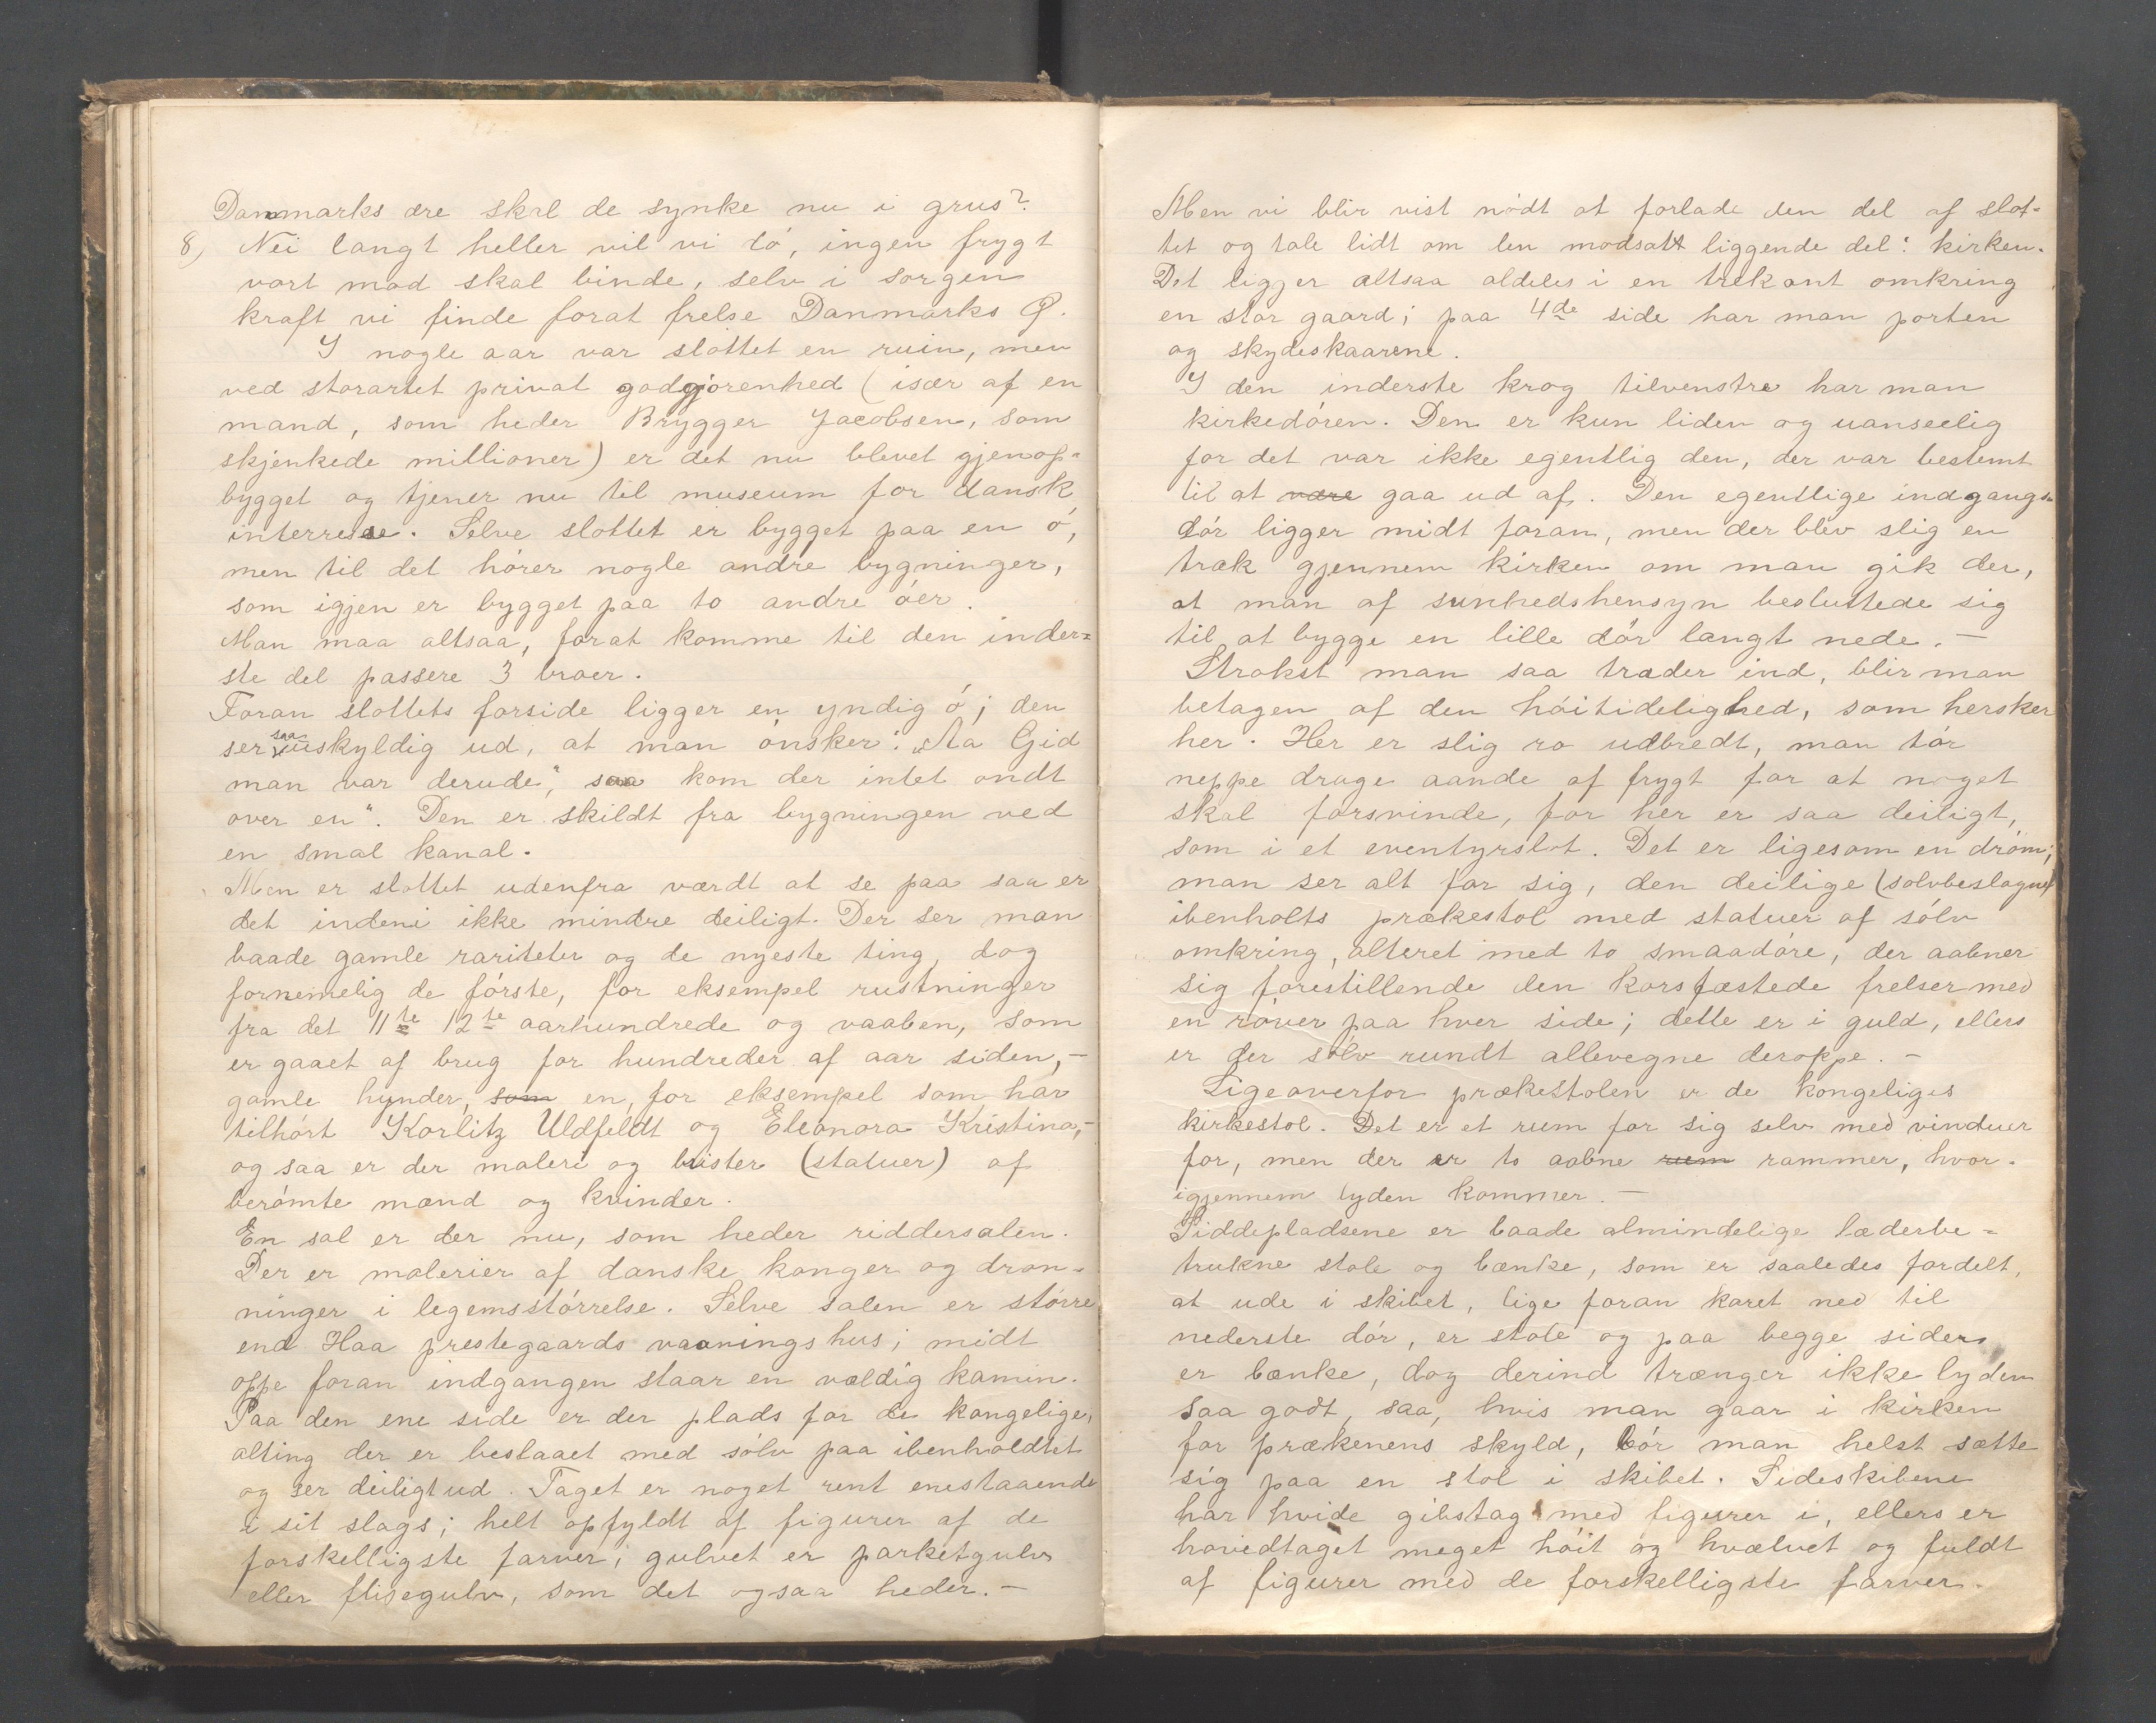 Danmarks ære skal de synke nu i grus?
8, Nei langt heller vil vi dó, ingen frygt
vort mod skal binde, selv i sorgen
kraft vi finde forat frelse Danmarks Ó.
I nogle aar var slottet en ruin, men
ved storartet privat godgjórenhed (især af en
mand, som heder Brygger Jacobsen, som
skjenkede millioner) er det nu blevet gjenop-
bygget og tjener nu til museum for dansk
interresse. Selve slottet er bygget paa en ó,
men til det hórer nogle andre bygninger,
som igjen er bygget paa to andre óer.
Man maa altsaa, forat komme til den inder=
ste del passere 3 broer.
Foran slottets forside ligger en yndig ó; den
ser saa uskyldig ud, at man ónsker: „Aa Gid
man var derude", saa kom der intet ondt
over en". Den er skildt fra bygningen ved
en smal kanal.
Men er slottet udenfra værdt at se paa saa er
det indeni ikke mindre deiligt. Der ser man
baade gamle rariteter og de nyeste ting, dog
fornemelig de fórste, for eksempel rustninger
fra det 11te 12te aarhundrede og vaaben, som
er gaaet af brug for hundreder af aar siden, –
gamle hynder, som en, for eksempel som har
tilhórt Korlitz Uldfeldt og Eleonora Kristina, –
og saa er der maleri og buister (statuer) af
berómte mænd og kvinder.
En sal er der nu, som heder riddersalen.
Der er malerier af danske konger og dron-
ninger i legemsstórrelse. Selve salen er stórre
end Haa prestegaards vaaningshus; midt
oppe foran indgangen staar en vældig kamin.
Paa den ene side er der plads for de kongelige,
alting der er beslaaet med sólv paa ibenholdtet
og ser deiligt ud. Taget er noget rent enestaaende
i sit slags; helt opfyldt af figurer af de
forskelligste farver; gulvet er parketgulv
eller flisegulv, som det ogsaa heder. –
Men vi blir vist nódt at forlade den del af slot-
tet og tale lidt om den modsatt liggende del: kirken.
Det ligger altsaa aldeles i en trekant omkring
en stor gaard; paa 4de side har man porten
og skydeskaarene.
I den inderste krog tilvenstre har man
kirkedóren. Den er kun liden og uanseelig
for det var ikke egentlig den, der var bestemt
til at være gaa ud af. Den egentlige indgangs-
dór ligger midt foran, men der blev slig en
træk gjennem kirken om man gik der,
at man af sunhedshensyn besluttede sig
til at bygge en lille dór langt nede. –
Strakst man saa træder ind, blir man
betagen af den hóitidelighed, som hersker
her. Her er slig ro udbredt, man tór
neppe drage aande af frygt for at noget
skal forsvinde, for her er saa deiligt,
som i et eventyrslot. Det er ligesom en dróm;
man ser alt for sig, den deilige (sólvbeslagne)
ibenholts prækestol med statuer af sólv
omkring, alteret med to smaadóre, der aabner
sig forestillende den korsfæstede frelser med
en róver paa hver side; dette er i guld, ellers
er der sólv rundt allevegne deroppe. –
Ligeoverfor prækestolen er de kongeliges
kirkestol. Det er et rum for sig selv med vinduer
for, men der er to aabne rum rammer, hvor-
igjennem lyden kommer. –
Siddepladsene er baade almindelige læderbe=
trukne stole og bænke, som er saaledes fordelt,
at ude i skibet, lige foran koret ned til
nederste dór, er stole og paa begge sider
er bænke, dog derind trænger ikke lyden
saa godt, saa, hvis man gaar i kirken
for prækenens skyld, bór man helst sætte
sig paa en stol i skibet. Sideskibene
har hvide gibstag med figurer i, ellers er
hovedtaget meget hóit og hvælvet og fuldt
af figurer med de forskelligste farver.